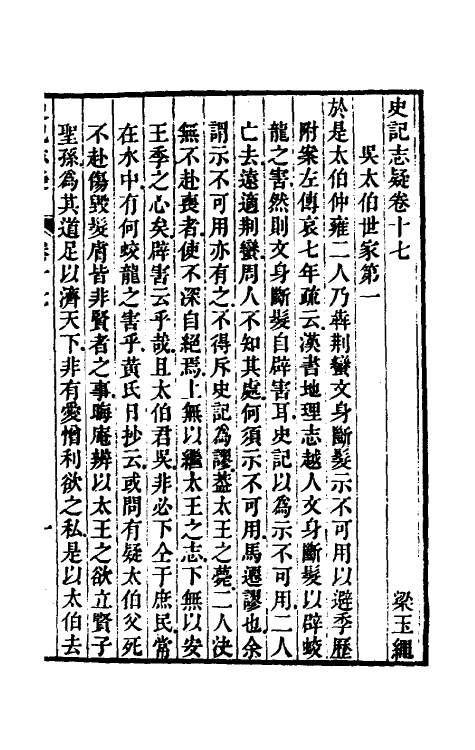 史記志疑卷十七
梁玉繩
吳太伯世家第一
於是太伯仲雍二人乃犇荆蠻文身斷髮示不可用以避季歷
附案左傳哀七年疏云漢書地理志越人文身斷髮以辟蛟
龍之害然則文身斷髮自辟害耳史記以為示不可用二人
亡去遠適荆蠻周人不知其處何須示不可用馬遷謬也余
謂示不可用亦有之不得斥史記為謬葢太王之薨二人決
無不赴喪者使不深自絕焉上無以繼太王之志下無以安
王季之心矣辟害云乎哉且太伯君吳非必下仝于庶民常
在水中有何蛟龍之害乎黄氏日抄云或問有疑太伯父死
不赴傷毀髮膚皆非賢者之事晦庵辨以太王之欲立賢子
聖孫為其道足以濟天下非有愛憎利欲之私是以太伯去
卷十七
一